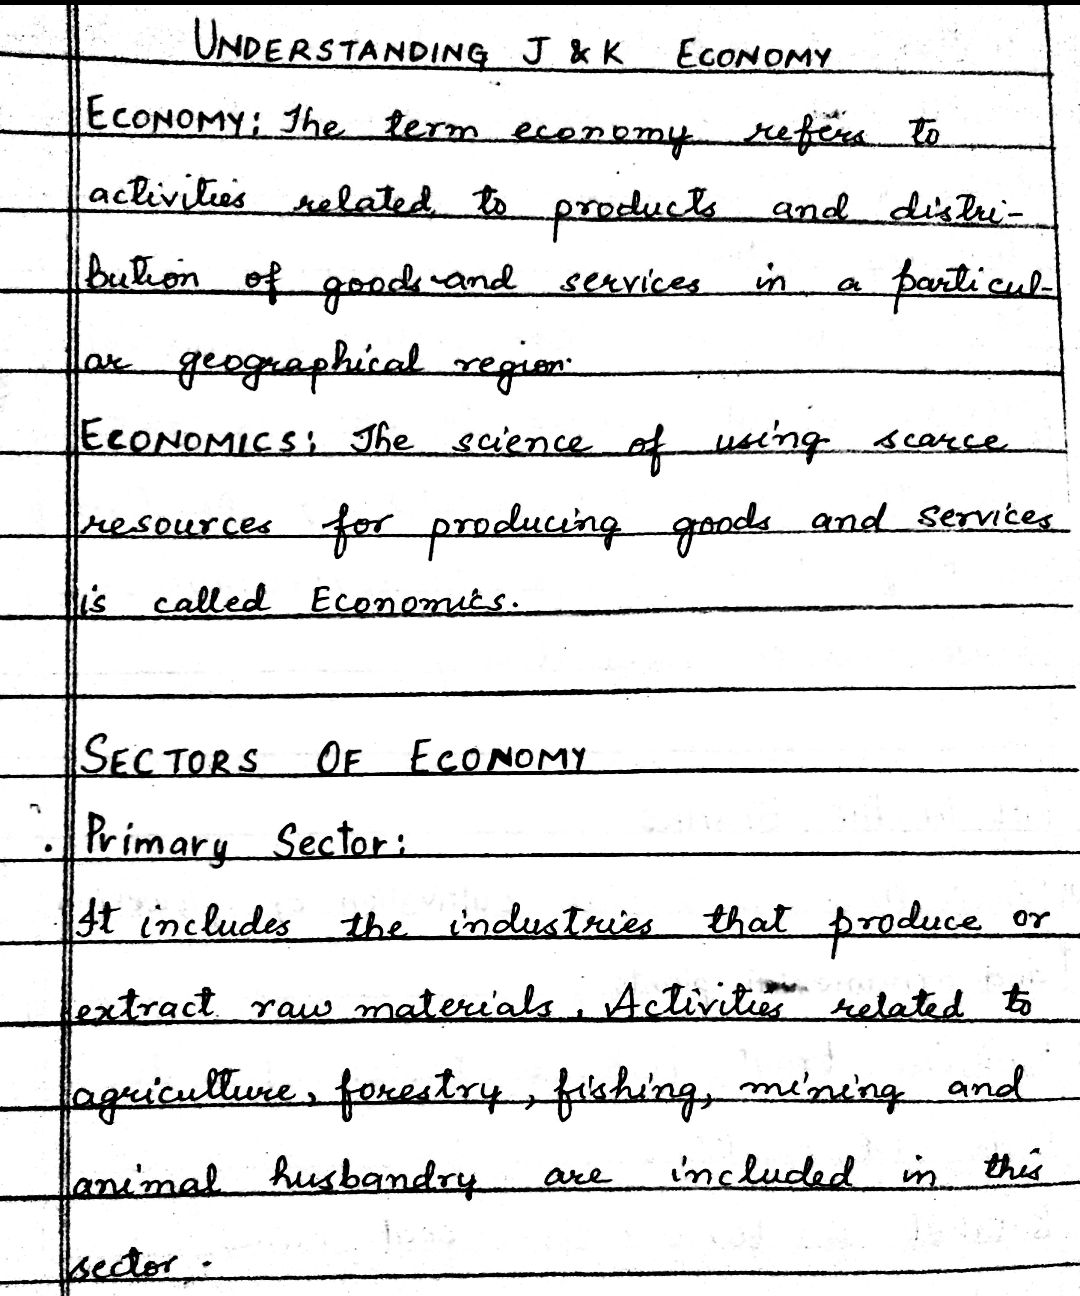 UNDERSTANDING J & K ECONOMY
ECONOMY: The term economy refers to
activities related to products and distri-
bution of goods and services in a particul-
ar geographical region.
ECONOMICS: The science of using scarce
resources for producing goods and services
is called Economics.
SECTORS OF ECONOMY
. Primary Sector:
It includes the industries that produce or
extract raw materials. Activities related to
agriculture, forestry, fishing, mining and
animal husbandry are included in this
sector.